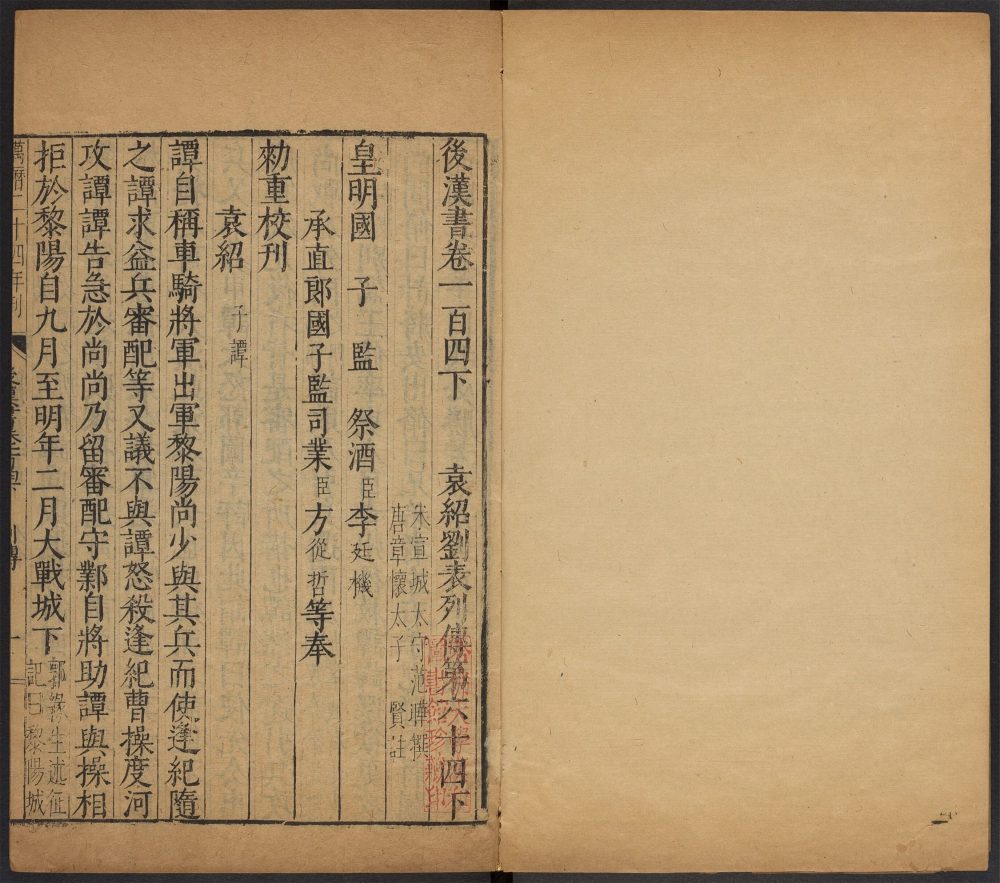 後漢書卷一百四下 袁紹劉表列傳第六十四下
宋宣城太守范曄撰
唐章懷太子賢註
皇明國子監祭酒臣李廷機
承直郎國子監司業臣方從哲等奉
勑重校刊
袁紹 子譚
譚自稱車騎將軍出軍黎陽尚少與其兵而使逢紀隨
之譚求益兵審配等又議不與譚怒殺逢紀曹操度河
攻譚譚告急於尚尚乃留審配守鄴自將助譚與操相
拒於黎陽自九月至明年二月大戰城下
郭緣生述征
記曰黎陽城
萬曆二十四年刊